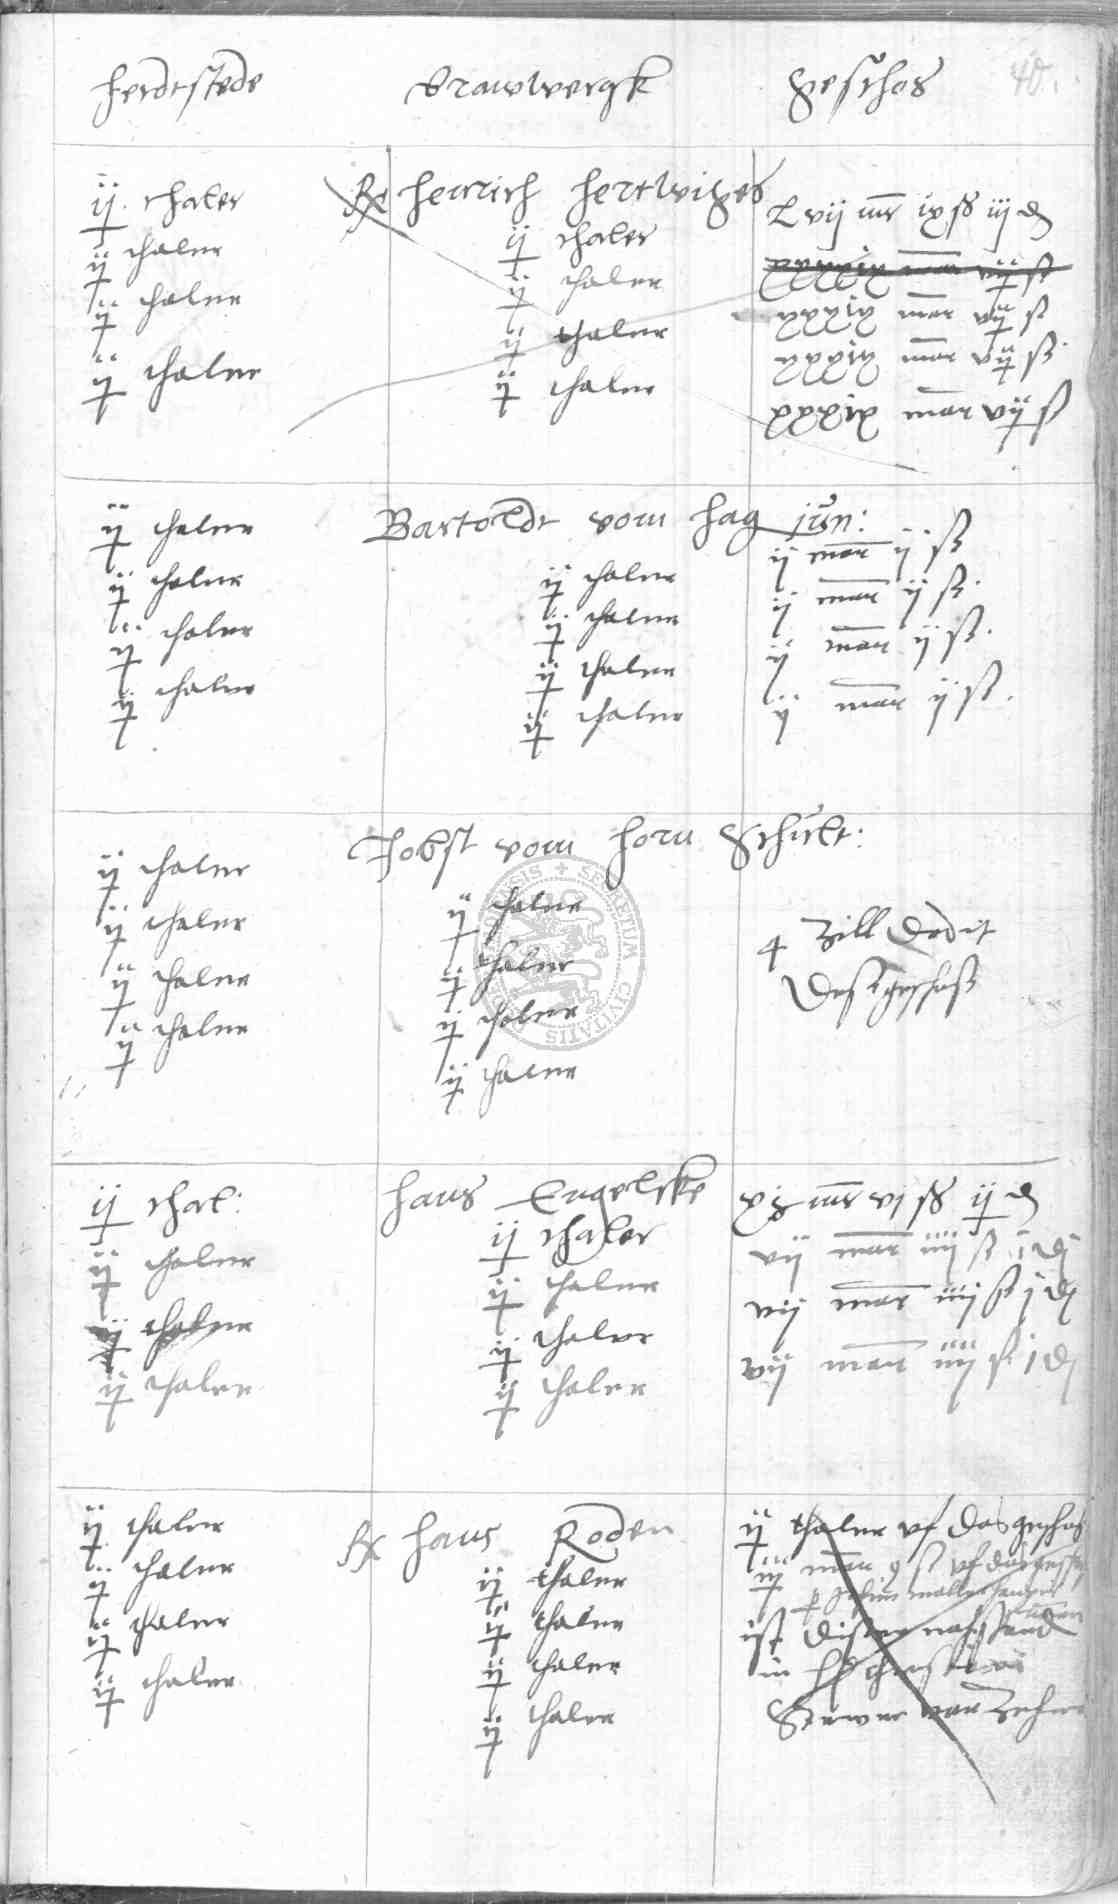 Ferdtstede Brawwergk Geschos 40.
ij thaler
ij thaler
ij thaler
ij thaler
Henrich Hertwiges
ij thaler
ij thaler
ij thaler
ij thaler
Lvij mr ix ß iij d
xxxxix mar vij ß
xxxxix mar vij ß
xxxxix mar vij ß
xxxxix mar vij ß
ij thaler
ij thaler
ij thaler
ij thaler
Bartoldt vom Hag jun:
ij thaler
ij thaler
ij thaler
ij thaler
ij mar ij ß
ij mar ij ß
ij mar ij ß
ij mar ij ß
ij thaler
ij thaler
ij thaler
ij thaler
Jobst vom Horn Schult:
ij thaler
ij thaler
ij thaler
ij thaler
Zill dedit
des geschoß
SECRETUM CIVITATIS
ij thal:
ij thaler
ij thaler
ij thaler
Hans Engelke
ij thaler
ij thaler
ij thaler
ij thaler
mr vj ß ij d
vij mar iiij ß j d
vij mar iiij ß j d
vij mar iiij ß j d
ij thaler
ij thaler
ij thaler
ij thaler
Hans Roden
ij thaler
ij thaler
ij thaler
ij thaler
ij thaler uf das geschos
ist diser nahstand
in